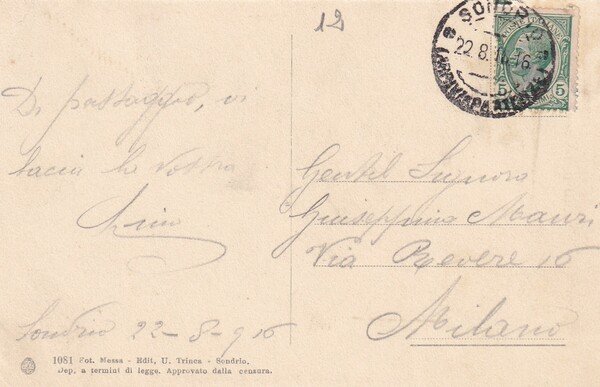 12
SONDRIO
22.8.16.16
(ARRIVI E PARTENZE)
5 5
Di passaggio, vi
bacia la vostra
Gentil Signora
Giuseppina Mauri
Via Revere 16
Milano
Sondrio 22-8-916
1081 Fot. Messa - Edit. U. Trinca - Sondrio.
Dep. a termini di legge. Approvato dalla censura.